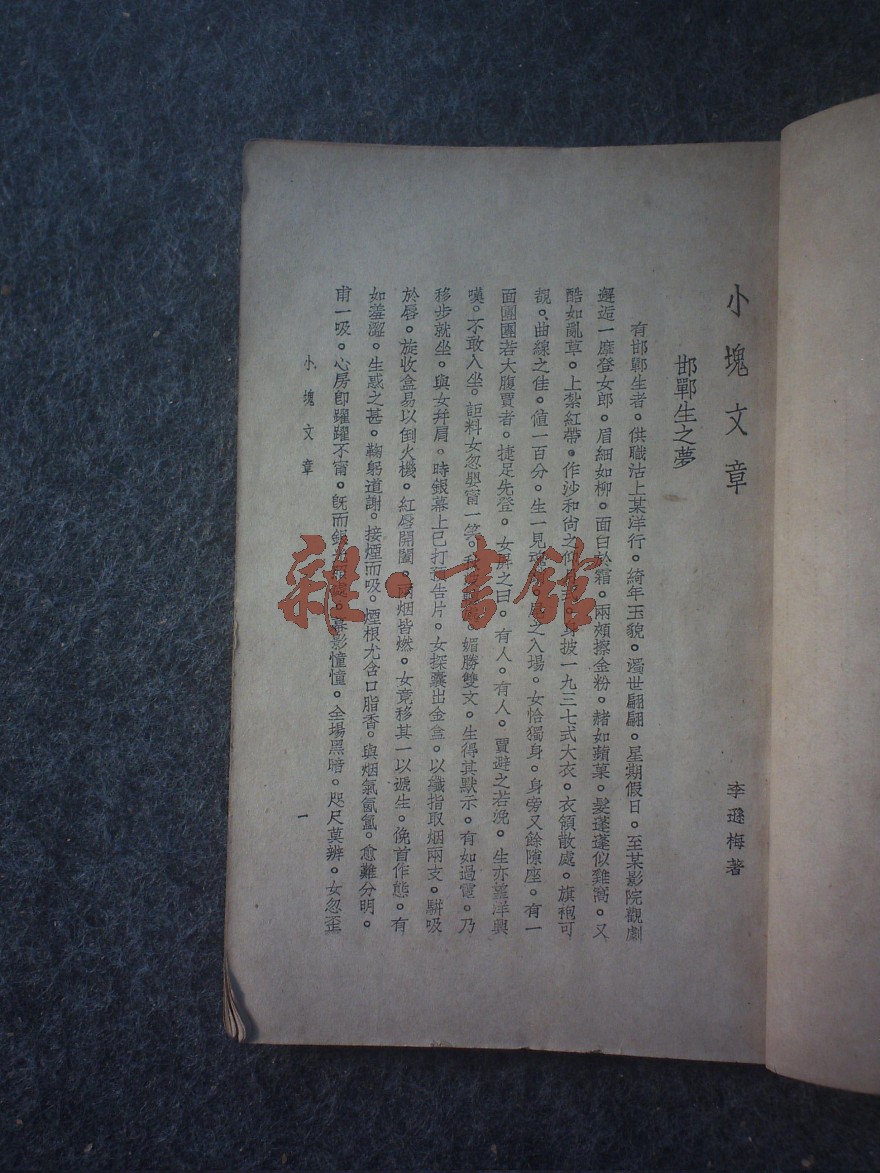 小塊文章
李遜梅著
邯鄲生之夢
有邯鄲生者。供職沽上某洋行。綺年玉貌。濁世翩翩。星期假日。至某影院觀劇
邂逅一摩登女郎。眉細如柳。面白於霜。兩頰擦金粉。赭如蘋菓。髮蓬蓬似雞窩。又
酷如亂草。上紮紅帶。作沙和尙之仰 披一九三七式大衣。衣領散處。旗袍可
覩。曲線之佳。値一百分。生一見 之入場。女恰獨身。身旁又餘隙座。有一
面團團若大腹賈者。捷足先登。女屛之曰。有人。有人。賈避之若浼。生亦望洋興
嘆。不敢入坐。詎料女忽嫛甯一笑。 媚勝雙文。生得其默示。有如過電。乃
移步就坐。與女幷肩。時銀幕上已打預告片。女探囊出金盒。以纖指取烟兩支。騈吸
於唇。旋收盒易以倒火機。紅唇開闔。兩烟皆燃。女竟移其一以遞生。俛首作態。有
如羞澀。生感之甚。鞠躬道謝。接煙而吸。煙根尤含口脂香。與烟氣氤氳。愈難分明。
甫一吸。心房卽躍躍不甯。旣而銀 幕影憧憧。全場黑暗。咫尺莫辨。女忽歪
小塊文章
一
雜·書館